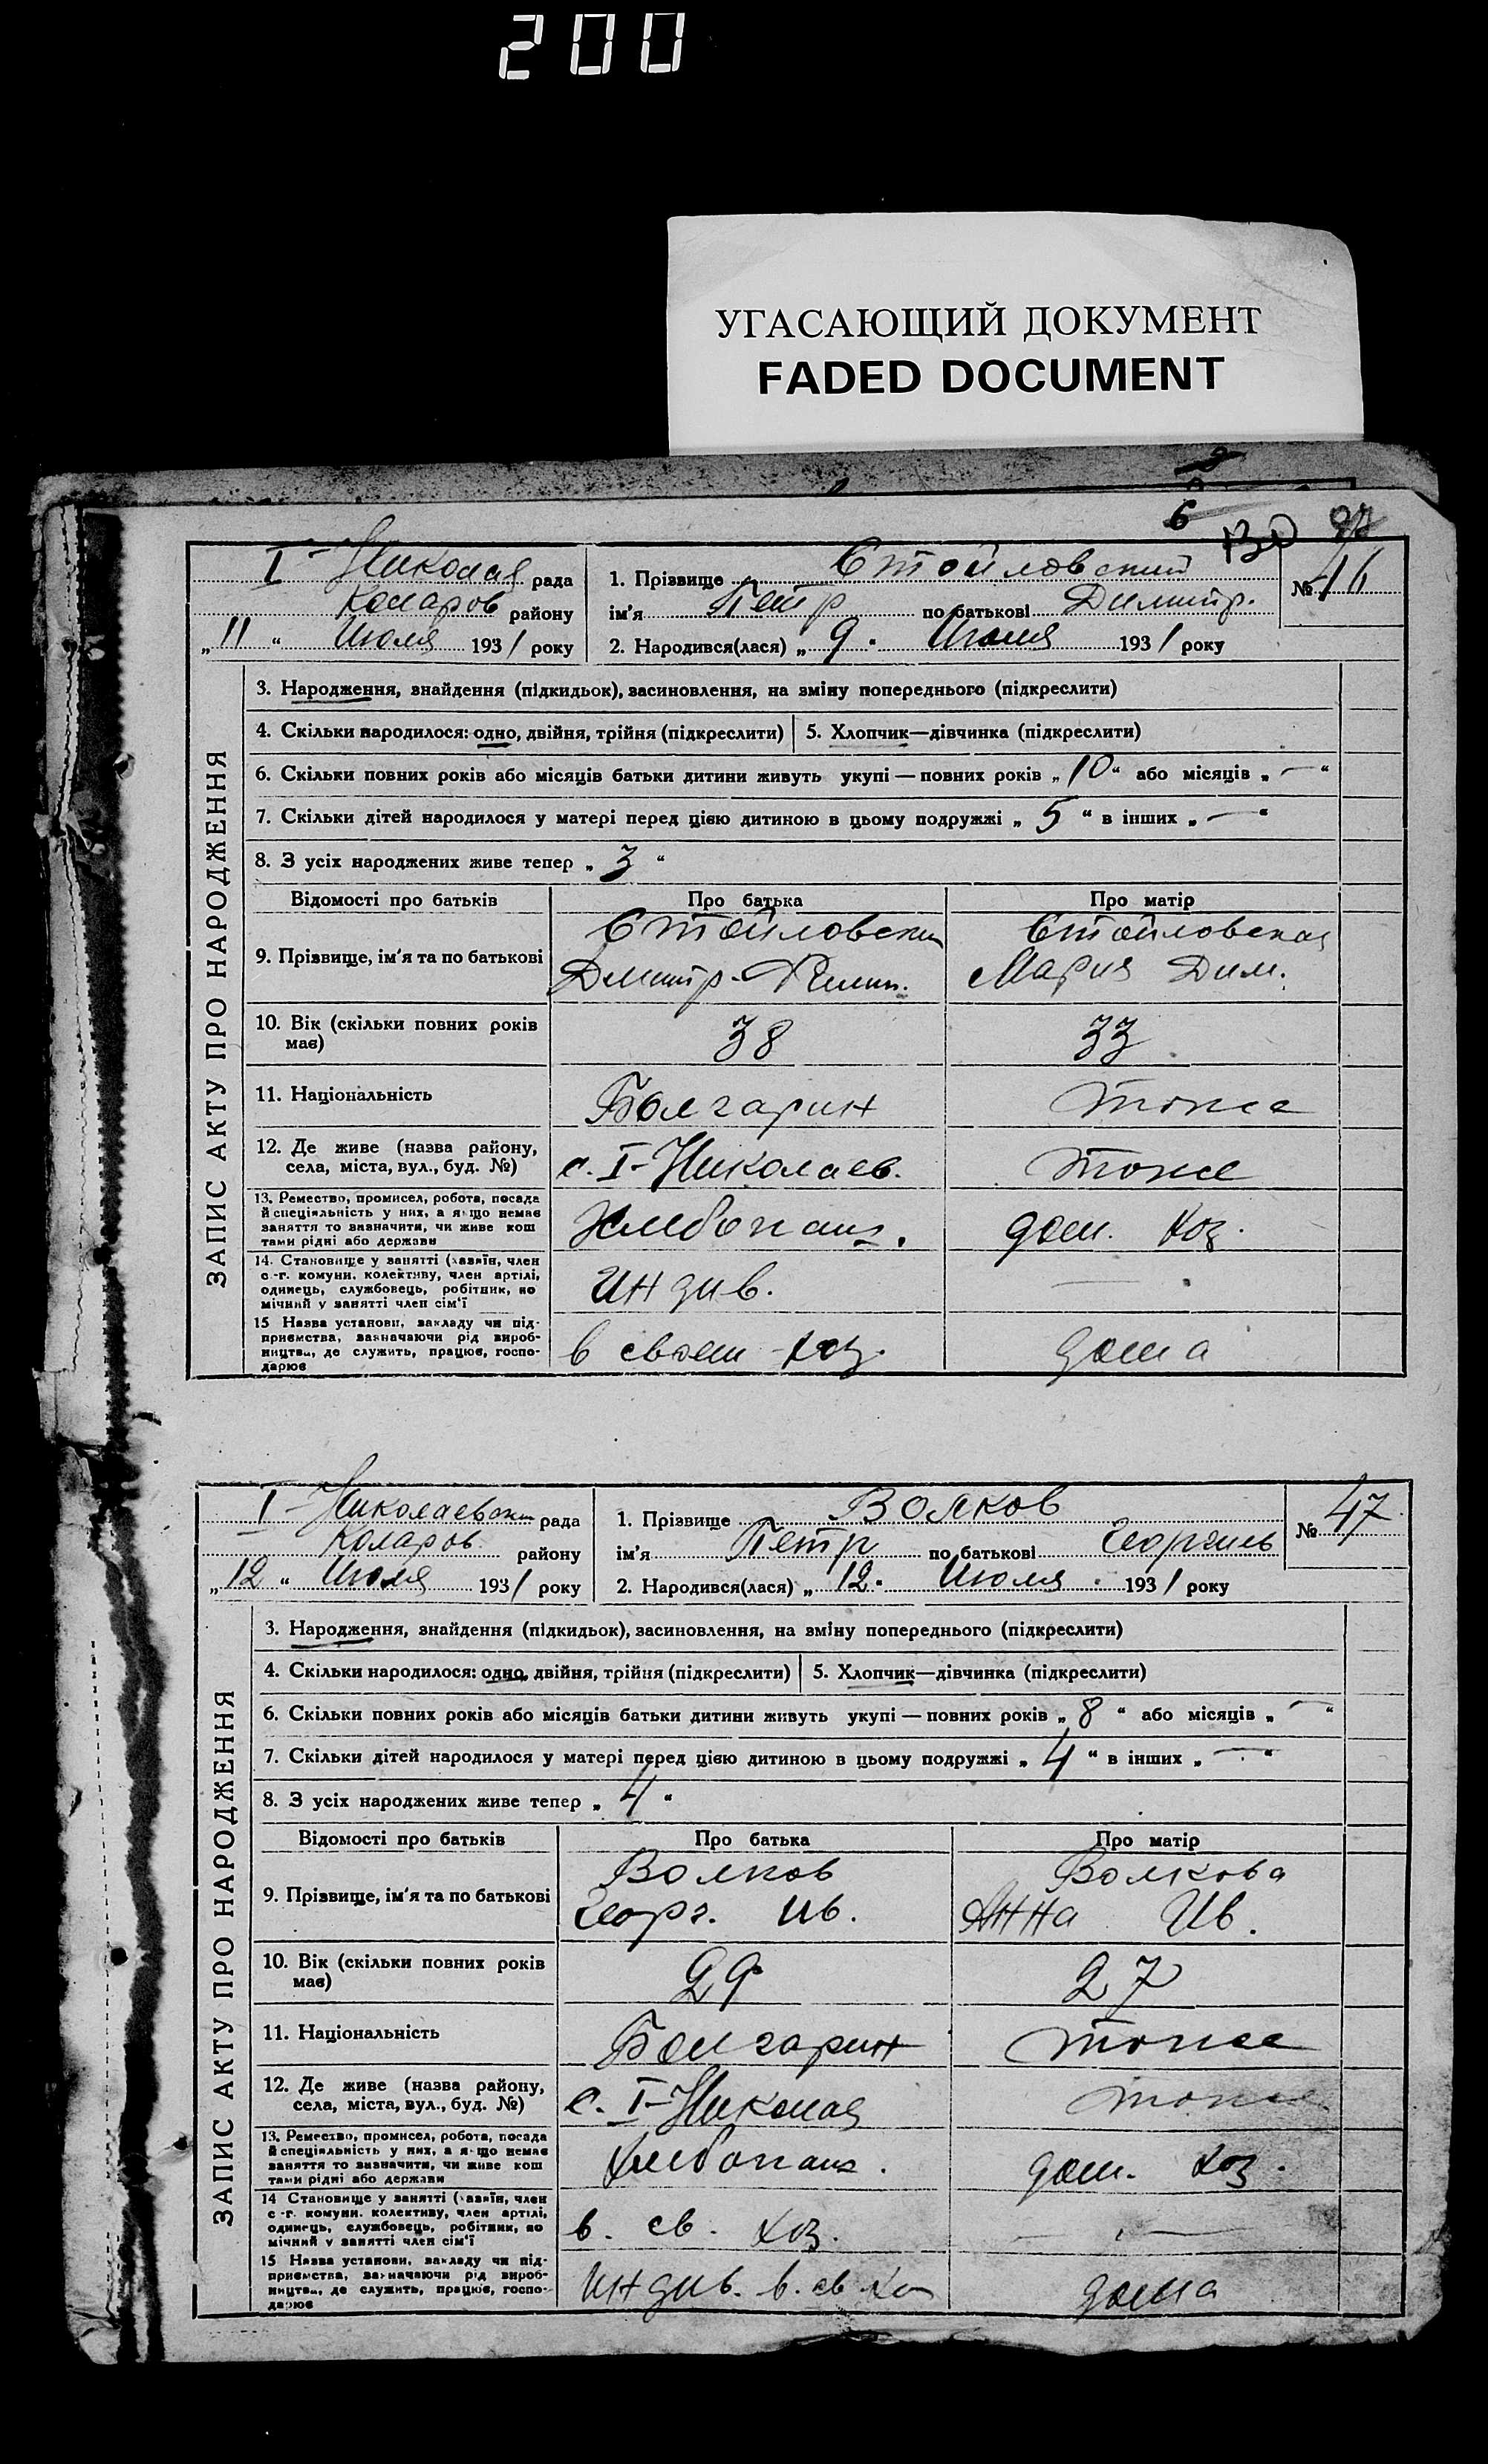 200
УГАСАЮЩИЙ ДОКУМЕНТ
FADED DOCUMENT
6
130
ЗАПИС АКТУ ПРО НАРОДЖЕННЯ
I-Николая рада
Коларов району
„11“ Июля 1931 року
1. Прізвище Стойловский
ім'я Петр по батькові Димитр.
2. Народився(лася) „9“ Июля 1931 року
№ 46
3. Народження, знайдення (підкидьок), засиновлення, на зміну попереднього (підкреслити)
4. Скільки народилося: одно, двійня, трійня (підкреслити) 5. Хлопчик—дівчинка (підкреслити)
6. Скільки повних років або місяців батьки дитини живуть укупі — повних років „10“ або місяців „—“
7. Скільки дітей народилося у матері перед цією дитиною в цьому подружжі „5“ в інших „—“
8. З усіх народжених живе тепер „3“
Відомості про батьків Про батька Про матір
9. Прізвище, ім'я та по батькові
Стойловски Стойловская
Димитр. Мария Дим.
10. Вік (скільки повних років має) 38 33
11. Національність Болгарин тоже
12. Де живе (назва району, села, міста, вул., буд. №) с. I-Николаев. тоже
13. Ремество, промисел, робота, посада
й спеціяльність у них, а якщо немає
заняття то визначити, чи живе кош
тами рідні або держави
Хлебопаш. дом. хоз.
14. Становище у занятті (хазяїн, член
с-г. комуни, колективу, член артілі,
одинець, службовець, робітник, по
мічний у занятті член сім'ї
Индив. —
15 Назва установи, закладу чи під-
приємства, зазначаючи рід вироб-
ництва, де служить, працює, госпо-
дарює
в своем хоз. дома
ЗАПИС АКТУ ПРО НАРОДЖЕННЯ
I-Николаевски рада
Коларов. району
„12“ Июля 1931 року
1. Прізвище Волков
ім'я Петр по батькові Георгиев
2. Народився(лася) „12“ Июля 1931 року
№ 47
3. Народження, знайдення (підкидьок), засиновлення, на зміну попереднього (підкреслити)
4. Скільки народилося: одно, двійня, трійня (підкреслити) 5. Хлопчик—дівчинка (підкреслити)
6. Скільки повних років або місяців батьки дитини живуть укупі — повних років „8“ або місяців „—“
7. Скільки дітей народилося у матері перед цією дитиною в цьому подружжі „4“ в інших „—“
8. З усіх народжених живе тепер „4“
Відомості про батьків Про батька Про матір
9. Прізвище, ім'я та по батькові
Волков Волкова
Георг. Ив. Анна Ив.
10. Вік (скільки повних років має) 29 27
11. Національність Болгарин тоже
12. Де живе (назва району, села, міста, вул., буд. №) с. I-Николая тоже
13. Ремество, промисел, робота, посада
й спеціяльність у них, а якщо немає
заняття то визначити, чи живе кош
тами рідні або держави
Хлебопаш. дом. хоз.
14 Становище у занятті (хазяїн, член
с-г. комуни, колективу, член артілі,
одинець, службовець, робітник, по
мічний у занятті член сім'ї
в. св. хоз. —
15 Назва установи, закладу чи під-
приємства, зазначаючи рід вироб-
ництва, де служить, працює, госпо-
дарює
Индив. в. св хоз дома